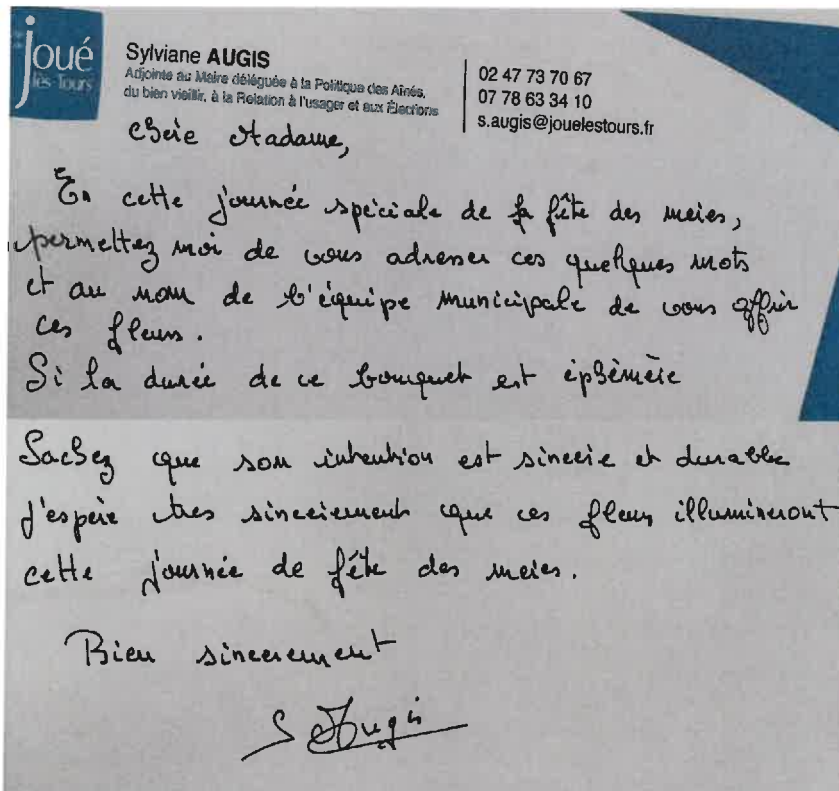 joué
lès-Tours
Sylviane AUGIS
Adjointe au Maire déléguée à la Politique des Aînés,
du bien vieillir, à la Relation à l'usager et aux Élections
02 47 73 70 67
07 78 63 34 10
s.augis@jouelestours.fr
Chère Madame,
En cette journée spéciale de la fête des mères,
permettez moi de vous adresser ces quelques mots
et au nom de l'équipe municipale de vous offrir
ces fleurs.
Si la durée de ce bouquet est éphémère
Sachez que son intention est sincère et durable
J'espère très sincèrement que ces fleurs illumineront
cette journée de fête des mères.
Bien sincèrement
S Augis